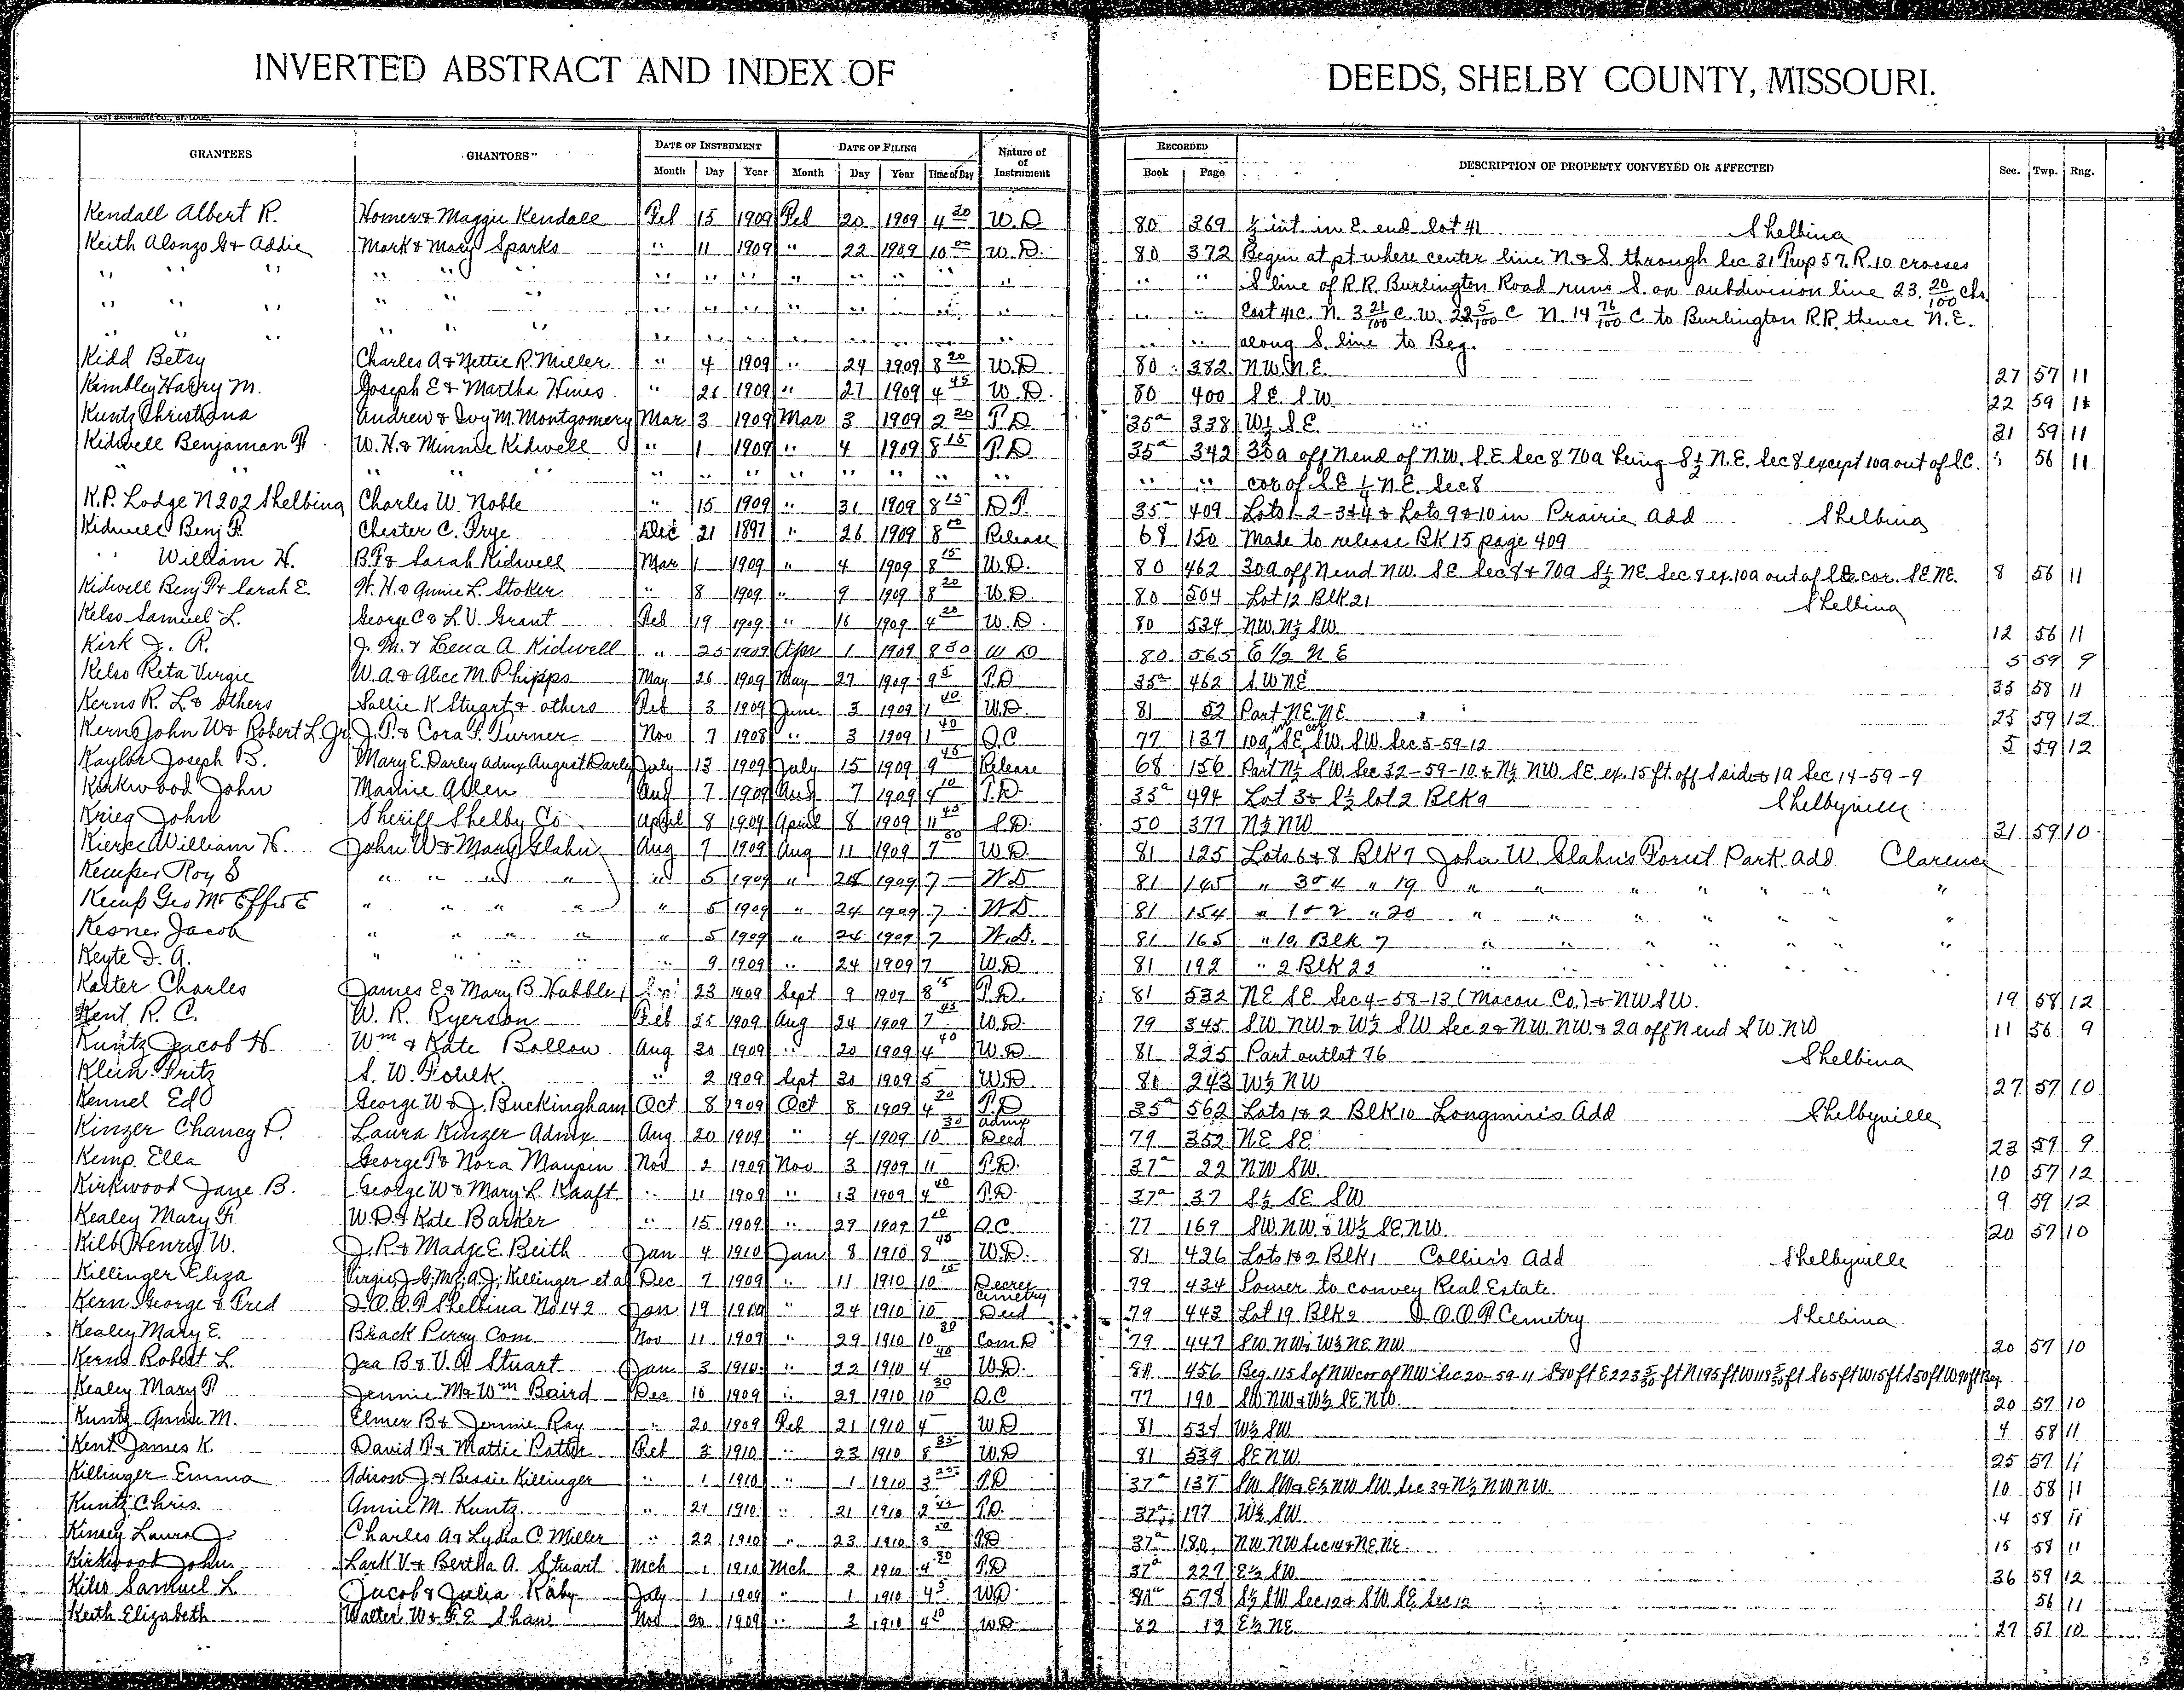 INVERTED ABSTRACT AND INDEX OF DEEDS, SHELBY COUNTY, MISSOURI.
GRANTEES GRANTORS DATE OF INSTRUMENT DATE OF FILING Nature of Instrument RECORDED DESCRIPTION OF PROPERTY CONVEYED OR AFFECTED Sec. Twp. Rng.
Month Day Year Month Day Year Time of Day Book Page
Kendall Albert R. Homer & Maggie Kendall Feb 15 1909 Feb 20 1909 4 20 W.D 80 369 ½ int. in E. end lot 41 Shelbina
Keith Alonzo G & Addie Mark & Mary Sparks " 11 1909 " 22 1909 10 00 W.D. 80 372 Begin at pt where center line N. & S. through Sec 31 Twp 57. R. 10 crosses
" " " " " " " " " " " " " " " " S line of R.R. Burlington Road runs S. on subdivision line 23. 20/100 chs
" " " " " " " " " " " " " " " " East 41c. N. 3 21/100 C. W. 22 5/100 C N. 14 76/100 C to Burlington R.R. thence N.E.
" " " " " " " " " " " " " " " along S. line to Beg.
Kidd Betsy Charles A & Nettie R. Miller " 4 1909 " 24 1909 8 20 W.D 80 382 N.W. N.E. 27 57 11
Kimbley Harry M. Joseph E & Martha Hines " 26 1909 " 27 1909 4 45 W.D. 80 400 S.E. S.W. 22 59 11
Kuntz Christana Andrew & Ivy M. Montgomery Mar 3 1909 Mar 3 1909 2 20 T.D 35a 338 W½ S.E. 31 59 11
Kidwell Benjaman F. W. H. & Minnie Kidwell " 1 1909 " 4 1909 8 15 T.D 35a 342 30a off N end of N.W. S.E. Sec 8 70a being S½ N.E. Sec 8 except 10a out of S.E. 56 11
" " " " " " " " " " " " " " cor of S.E ¼ N.E. Sec 8
K.P. Lodge N 202 Shelbina Charles W. Noble " 15 1909 " 31 1909 8 15 D.T. 35a 409 Lots 1-2-3&4 & Lots 9&10 in Prairie Add Shelbina
Kidwell Benj F. Chester C. Frye Dec 21 1897 " 26 1909 8 00 Release 68 150 Made to release BK 15 page 409
" William H. B.F & Sarah Kidwell Mar 1 1909 " 4 1909 8 15 W.D. 80 462 30a off N end NW. SE Sec 8 & 70a S½ NE. Sec 8 ex. 10a out of SE cor. SE NE. 8 56 11
Kidwell Benj F & Sarah E. W. H. & Annie L. Stoker " 8 1909 " 9 1909 8 20 W.D. 80 504 Lot 12 Blk 21 Shelbina
Kelso Samuel L. George C & L. V. Grant Feb 19 1909 " 16 1909 4 20 W.D. 80 534 NW. N½ SW 12 56 11
Kirk J. R. J. M. & Lena A Kidwell " 25 1909 Apr 1 1909 8 30 W D 80 565 E 1/2 N E 5 59 9
Kelso Reta Virgie W. A. & Alice M. Phipps May 26 1909 May 27 1909 9 5 T.D 35a 462 S.W NE 35 58 11
Kerns R. L. & others Sallie K Stuart & others Feb 3 1909 June 3 1909 1 40 W.D. 81 52 Part NE. NE 25 59 12
Kerns John W & Robert L. Jr. J. P. & Cora F. Turner Nov 7 1908 " 3 1909 1 40 Q.C 77 137 10a in SE cor SW. SW. Sec 5-59-12 5 59 12
Kaylor Joseph B. Mary E. Darley Admx August Darley July 13 1909 July 15 1909 9 45 Release 68 156 Part N½ SW Sec 32-59-10 & N½ NW. SE ex. 15 ft. off S side & 1a Sec 14-59-9
Kirkwood John Mamie Allen Aug 7 1909 Aug 7 1909 4 10 T.D. 35a 494 Lot 3 & S½ lot 2 Blk 9 Shelbyville
Krieg John Sheriff Shelby Co. April 8 1909 April 8 1909 11 45 S.D. 50 377 N½ NW 31 59 10
Kierce William H. John W & Mary Glahn Aug 7 1909 Aug 11 1909 7 30 W.D. 81 125 Lots 6 & 8 Blk 7 John W. Glahn's Forest Park Add Clarence
Kemper Roy S " " " " " 5 1909 " 24 1909 7 W D 81 145 " 3 & 4 " 19 " " " " " "
Kemp Geo M & Effie E " " " " " 5 1909 " 24 1909 7 W D 81 154 " 1 & 2 " 20 " " " " " "
Kesner Jacob " " " " " 5 1909 " 24 1909 7 W.D. 81 165 " 10. Blk 7 " " " " " "
Keyte I. A. " " " " " 9 1909 " 24 1909 7 W.D 81 192 " 2 Blk 22 " " " " " "
Kaster Charles James E & Mary B. Hubble 23 1909 Sept 9 1909 8 15 T.D. 81 532 NE SE Sec 4-58-13 (Macon Co.) & NW SW. 19 58 12
Kent R. C. W. R. Ryerson Feb 25 1909 Aug 24 1909 7 45 W.D. 79 345 SW. NW & W½ SW Sec 2 & NW. NW. & 2a off N end SW. NW 11 56 9
Kuntz Jacob H. Wm & Kate Bollow Aug 30 1909 " 20 1909 4 40 W.D. 81 225 Part outlot 76 Shelbina
Klein Fritz S. W. Fouk. " 2 1909 Sept 30 1909 5 W.D. 81 243 W½ NW 27 57 10
Kennel Ed George W & J. Buckingham Oct 8 1909 Oct 8 1909 4 20 T.D 35a 562 Lots 1 & 2 Blk 10 Longmire's Add Shelbyville
Kinzer Chancy P. Laura Kinzer Admx Aug 20 1909 " 4 1909 10 30 Admx Deed 79 352 NE SE 23 59 9
Kemp. Ella George T & Nora Maupin Nov 2 1909 Nov 3 1909 11 T.D. 37a 22 NW SW. 10 57 12
Kirkwood Jaye B. George W & Mary L. Kraft. " 11 1909 " 13 1909 4 40 T.D. 37a 37 S½ SE SW 9 59 12
Kealey Mary F. W. D. & Kate Barker " 15 1909 " 27 1909 7 10 Q.C 77 169 SW NW & W½ SE NW. 20 57 10
Kilb Henry W. J. R & Madge E. Beith Jan 4 1910 Jan 8 1910 8 45 W.D. 81 426 Lots 1 & 2 Blk 1 Collier's Add Shelbyville
Killinger Eliza Virgie J. G; M. E; A. J; Killinger et al Dec 7 1909 " 11 1910 10 15 Decree 79 434 Power to convey Real Estate.
Kern George & Fred I.O.O.F Shelbina No 142 Jan 19 1910 " 24 1910 10 Cemetry Deed 79 443 Lot 19 Blk 2 I.O.O.F Cemetry Shelbina
Kealey Mary E. Brack Perry Com. Nov 11 1909 " 29 1910 10 30 Com. D 79 447 SW. NW & W½ NE NW 20 57 10
Kerns Robert L. Ira B & V. A Stuart Jan 3 1910 " 22 1910 4 40 W.D. 81 456 Beg. 115 S of NW cor of NW Sec 20-59-11
Kealey Mary F. Jennie M & Wm Baird Dec 10 1909 " 29 1910 10 30 Q.C 77 190 SW NW & W½ SE. NW. 20 57 10
Kuntz Annie M. Elmer B & Jennie Ray " 20 1909 Feb 21 1910 4 W.D 81 534 W½ SW 4 58 11
Kent James K. David P & Mattie Potter Feb 3 1910 " 23 1910 8 35 W.D 81 539 SE NW 25 57 11
Killinger Emma Adison J. & Bessie Killinger " 1 1910 " 1 1910 3 T.D 37a 137 SW. SW & E½ NW SW Sec 3 & N½ NW NW. 10 58 11
Kuntz Chris. Annie M. Kuntz. " 21 1910 " 21 1910 2 T.D. 37a 177 W½ SW 4 58 11
Kinsey Laura J. Charles A & Lydia C Miller " 22 1910 " 23 1910 3 T.D 37a 180 NW. NW Sec 14 & NE. NE. 15 58 11
Kirkwood John Lark V. & Bertha A. Stuart Mch 1 1910 Mch 2 1910 4 30 T.D 37a 227 E½ SW 36 59 12
Samuel L. Jacob & Julia July 1 1909 " 1 1910 4 5 WD. 578 S½ SW Sec 12 & SW SE Sec 12 56 11
Keith Elizabeth Walter W & F. E Shaw Nov 20 1909 " 2 1910 4 10 WD. 82 12 E½ NE 27 57 10